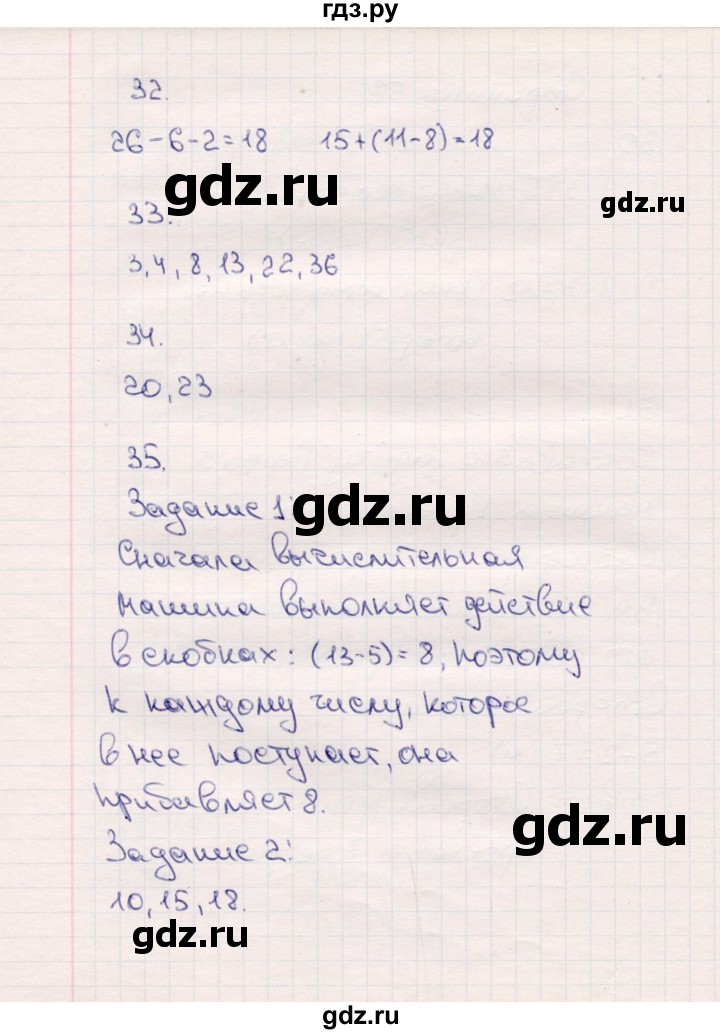 гдз.ру
32.
26-6-2=18 15+(11-8)=18
gdz.ru
gdz.ru
33.
3,4,8,13,22,36
34.
20,23
35.
Задание 1:
gdz.ru
Сначала вычислительная
машина выполняет действие
в скобках: (13-5)=8, поэтому
к каждому числу, которое
в нее поступает, она
прибавляет 8.
gdz.ru
Задание 2:
10,15,18.
gdz.ru
gdz.ru